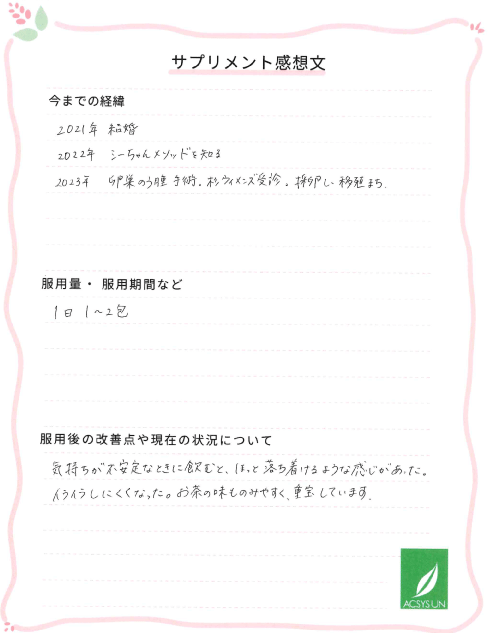 サプリメント感想文
今までの経緯
2021年 結婚
2022年 シーちゃんメソッドを知る
2023年 卵巣のう腫手術。杉ウィメンズ受診。採卵し移植まち.
服用量・ 服用期間など
1日 1〜2包
服用後の改善点や現在の状況について
気持ちが不安定なときに飲むと、ほっと落ち着けるような感じがあった。
イライラしにくくなった。お茶の味ものみやすく、重宝しています.
ACSYSUN